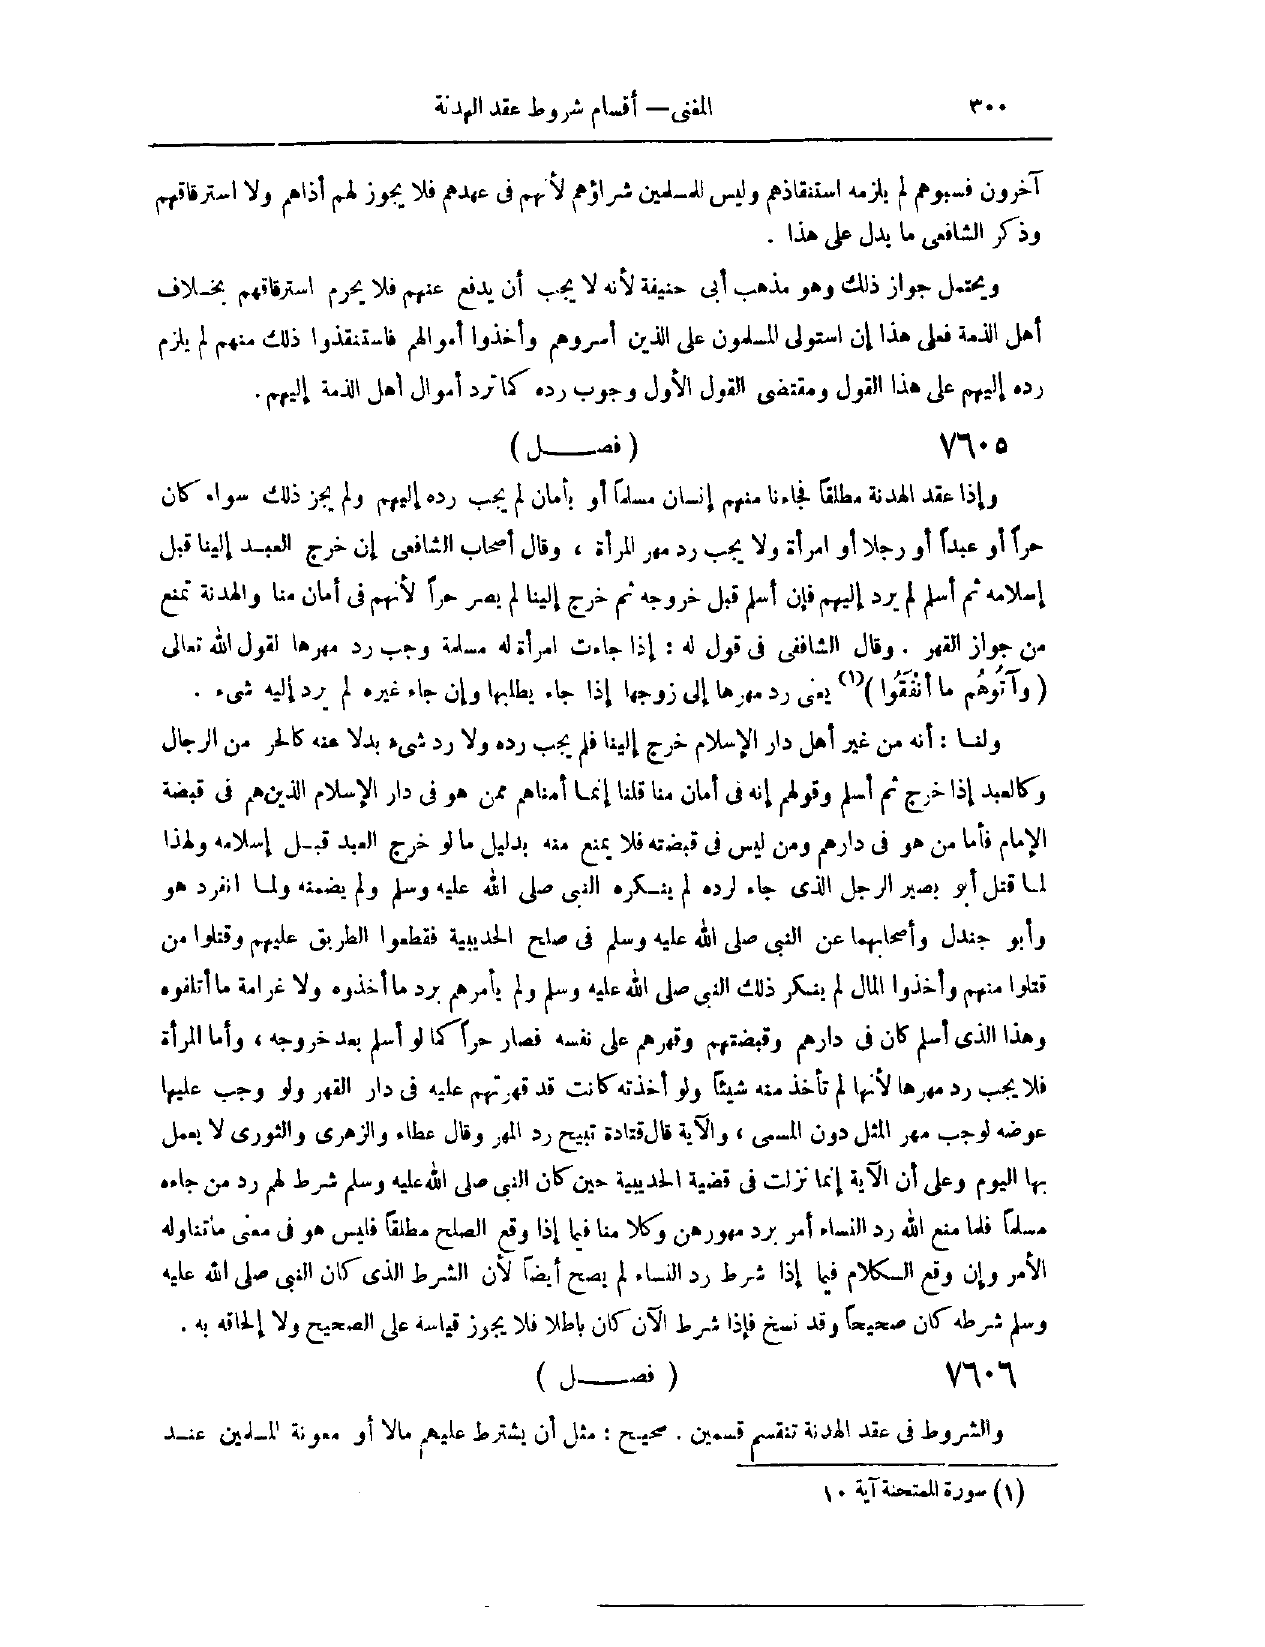 ٣٠٠ المغنى — أقسام شروط عقد الهدنة
آخرون فسبوهم لم يلزمه استنقاذهم وليس للمسلمين شراؤهم لأنهم فى عهدهم فلا يجوز لهم أذاهم ولا استرقاقهم
وذكر الشافعى ما يدل على هذا .
ويحتمل جواز ذلك وهو مذهب أبى حنيفة لأنه لا يجب أن يدفع عنهم فلا يحرم استرقاقهم بخلاف
أهل الذمة فعلى هذا إن استولى المسلمون على الذين أسروهم وأخذوا أموالهم فاستنقذوا ذلك منهم لم يلزم
رده إليهم على هذا القول ومقتضى القول الأول وجوب رده كما ترد أموال أهل الذمة إليهم .
٧٦٠٥ ( فصل )
وإذا عقد الهدنة مطلقاً فجاءنا منهم إنسان مسلماً أو بأمان لم يجب رده إليهم ولم يجز ذلك سواء كان
حراً أو عبداً أو رجلا أو امرأة ولا يجب رد مهر المرأة ، وقال أصحاب الشافعى إن خرج العبد إلينا قبل
إسلامه ثم أسلم لم يرد إليهم فإن أسلم قبل خروجه ثم خرج إلينا لم يصر حراً لأنهم فى أمان منا والهدنة تمنع
من جواز القهر . وقال الشافعى فى قول له : إذا جاءت امرأة له مسلمة وجب رد مهرها لقول الله تعالى
( وَآتُوهُم ما أَنْفَقُوا )(١) يعنى رد مهرها إلى زوجها إذا جاء يطلبها وإن جاء غيره لم يرد إليه شىء .
ولنا : أنه من غير أهل دار الإسلام خرج إلينا فلم يجب رده ولا رد شىء بدلا عنه كالحر من الرجال
وكالعبد إذا خرج ثم أسلم وقولهم إنه فى أمان منا قلنا إنما أمناهم ممن هو فى دار الإسلام الذين هم فى قبضة
الإمام فأما من هو فى دارهم ومن ليس فى قبضته فلا يمنع منه بدليل ما لو خرج العبد قبل إسلامه ولهذا
لما قتل أبو بصير الرجل الذى جاء لرده لم ينكره النبى صلى الله عليه وسلم ولم يضمنه ولما انفرد هو
وأبو جندل وأصحابهما عن النبى صلى الله عليه وسلم فى صلح الحديبية فقطعوا الطريق عليهم وقتلوا من
قتلوا منهم وأخذوا المال لم ينكر ذلك النبى صلى الله عليه وسلم ولم يأمرهم برد ما أخذوه ولا غرامة ما أتلفوه
وهذا الذى أسلم كان فى دارهم وقبضتهم وقهرهم على نفسه فصار حراً كما لو أسلم بعد خروجه ، وأما المرأة
فلا يجب رد مهرها لأنها لم تأخذ منه شيئاً ولو أخذته كانت قد قهرتهم عليه فى دار القهر ولو وجب عليها
عوضه لوجب مهر المثل دون المسمى ، والآية قال قتادة تبيح رد المهر وقال عطاء والزهرى والثورى لا يعمل
بها اليوم وعلى أن الآية إنما نزلت فى قضية الحديبية حين كان النبى صلى الله عليه وسلم شرط لهم رد من جاءه
مسلماً فلما منع الله رد النساء أمر برد مهورهن وكلامنا فيما إذا وقع الصلح مطلقاً فليس هو فى معنى ماتناوله
الأمر وإن وقع الكلام فيما إذا شرط رد النساء لم يصح أيضاً لأن الشرط الذى كان النبى صلى الله عليه
وسلم شرطه كان صحيحاً وقد نسخ فإذا شرط الآن كان باطلا فلا يجوز قياسه على الصحيح ولا إلحاقه به .
٧٦٠٦ ( فصل )
والشروط فى عقد الهدنة تنقسم قسمين . صحيح : مثل أن يشترط عليهم مالا أو معونة المسلمين عند
(١) سورة الممتحنة آية ١٠